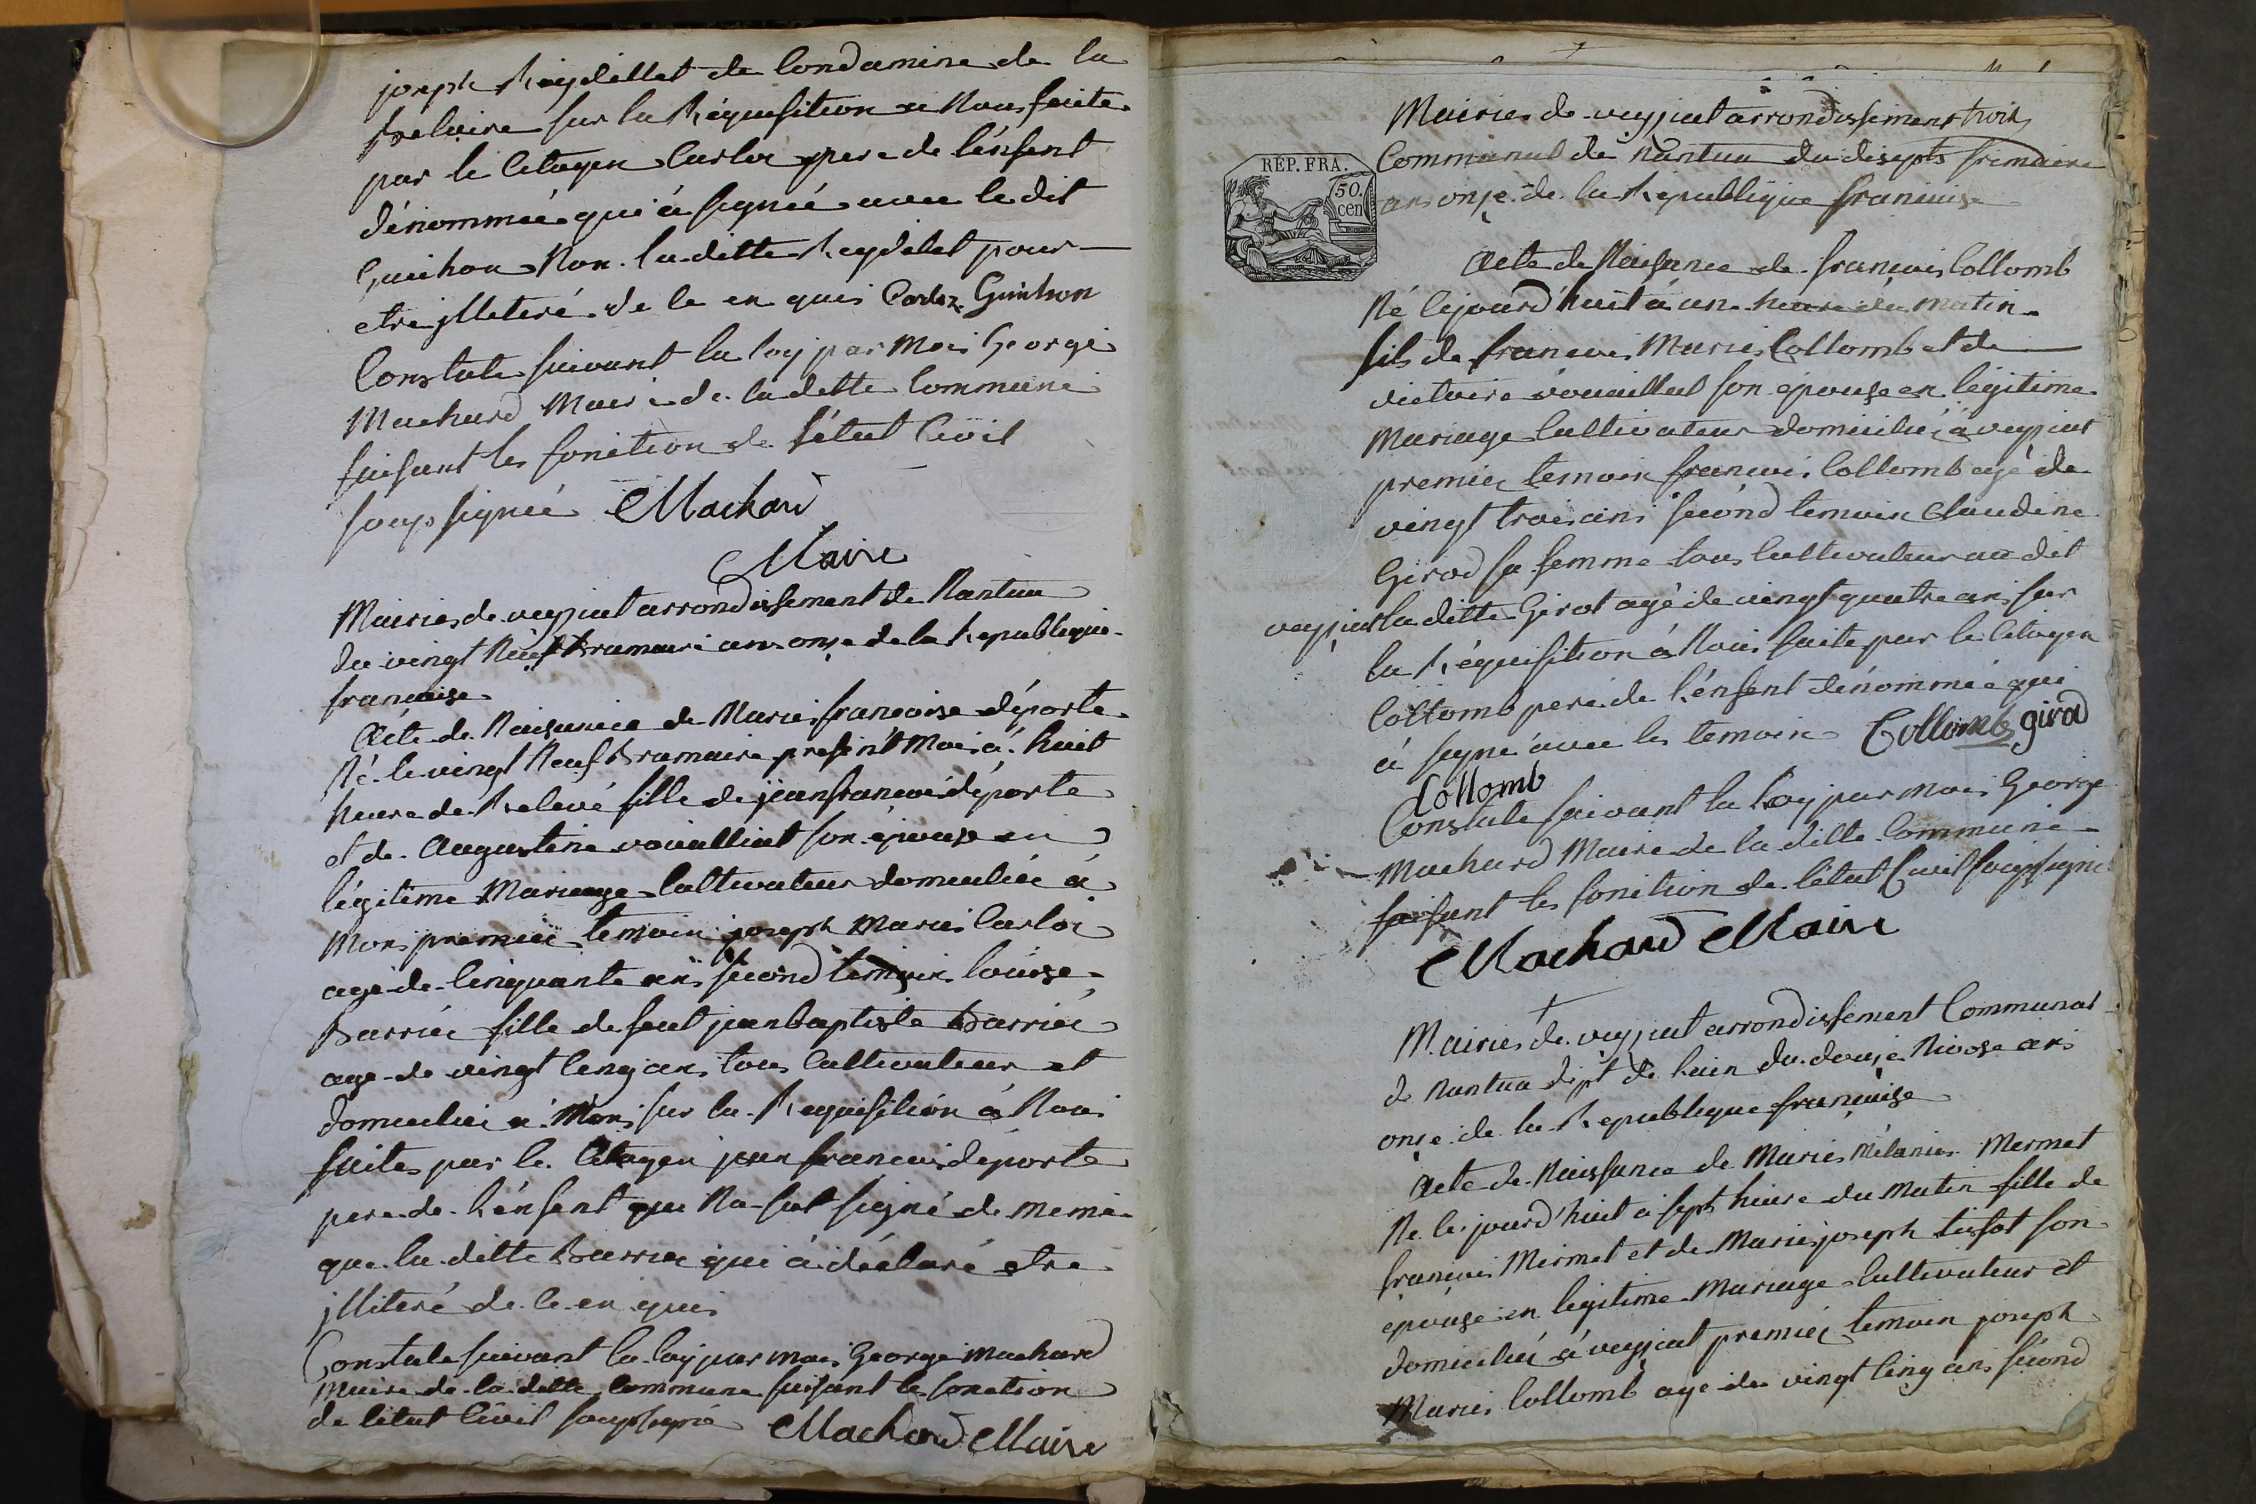 joseph Reydellet de Condamine de la
beloire sur la Réquisition a Nous faite
par le Citoyen Carloz pere de l'énfent
dénommée qui á signée avec le dit
Guichon Non la ditte Reydelet pour
etre jlleteré de le en quis Carloz Guichon
Constate suivant la loy par Moi George
Machard Maire de la ditte Commune
faisant les fonction de l'état Civil
soup signée Machard
Maire
Mairies de veyziat arrondissement de Nantua
du vingt Neuf Brumaire an onze de la Republique
francaise
Acte de Naisance de Marie francoise déporte
Né le vingt Neuf Brumaire present Mois á huit
heure de Relevé fille de jean francois déporte
et de Augustine vouilliat son épouse en
légitime Mariage Cultivateur domicilié á
Mons premier temoin joseph Marie Carloz
agé de Cinquante ans second temoin louise
Barrier fille de feut jean baptiste Barrier
age de vingt Cenq ans tous Cultivateur et
domicilié a Mons sur la Requisition á Nous
faites par le Citoyen jean francois déporte
pere de l'énfent qui Na sut signé de meme
que la ditte Barrier qui á déclaré etre
jlliteré de le en quis
Constate suivant la loy par moi George Machard
Maire de la ditte Commune faisant les fonction
de l'état Civil soupsigné Machard Maire
Mairies de veyziat arrondissement trois
REP. FRA.
50.
cen
Communal de Nantua du disepts frimaire
ans onze de la Republique francaise
Acte de Naisance de francois Collomb
Né le jourd'huit á une heure du matin
fils de francois Marie Collomb et de
victoire vouilliat son épouse en légitime
Mariage Cultivateur domicilié á veyziat
premier temoin francois Collomb agé de
vingt trois ans sécond temoin Claudine
Girod sa femme tous Cultivateur au dit
veyziat la ditte Girot agé de vingt quatre ans sur
la Réquisition á Nous faite par le Citoyen
Collomb pere de l'énfent dénommée qui
á signé avec les temoin Collomb girod
Collomb
Constate suivant la Loy par moi George
Machard Maire de la ditte Commune
faisant les fonction de l'état Civil soupsigné
Machard Maire
Mairies de veyziat arrondissement Communal
de Nantua dept de lain du douze Nivose ans
onze de la Republique francaise
Acte de Naissance de Marie Mélanie Mermet
Ne le jourd'huit á sept heure du Matin fille de
françois Mermet et de Marie joseph tissot son
epouse en légitime Mariage Cultivateur et
domicilié á veyziat premier temoin joseph
Marie Collomb age de vingt Cinq ans sécond